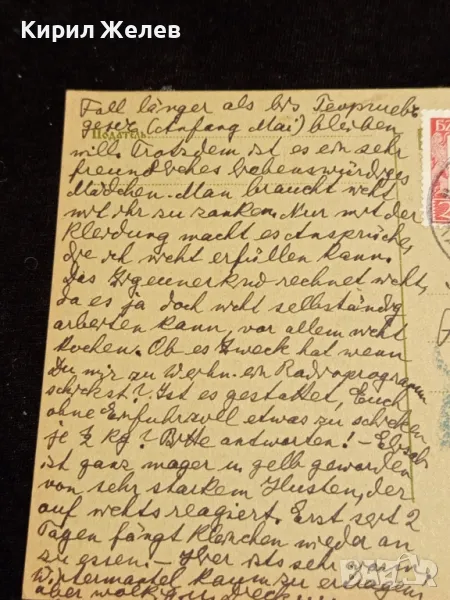 Кирил Желев
Fall länger als bis Георгиевъ
день (Anfang Mai) bleiben
Податель
will. Trotzdem ist es ein sehr
freundliches liebenswürdiges
Mädchen. Man braucht nicht
mit ihr zu zanken. Nur mit der
Kleidung macht es Ansprüche,
die ich nicht erfüllen kann.
Das Zigeunerkind rechnet nicht,
da es ja doch nicht selbständig
arbeiten kann, vor allem nicht
kochen. Ob es Zweck hat wenn
Du mir zu Weihn. ein Radioprogramm
schickst? Ist es gestattet, Euch
ohne Einfuhrzoll etwas zu schicken
je ½ kg? Bitte antworten! – Elisab.
ist ganz mager u. gelb geworden
von sehr starkem Husten, der
auf nichts reagiert. Erst seit 2
Tagen fängt Kleinchen wieder an
zu essen! – Hier ists sehr warm
Wintermantel kaum zu ertragen
aber
БЪ
2
bazar.bg